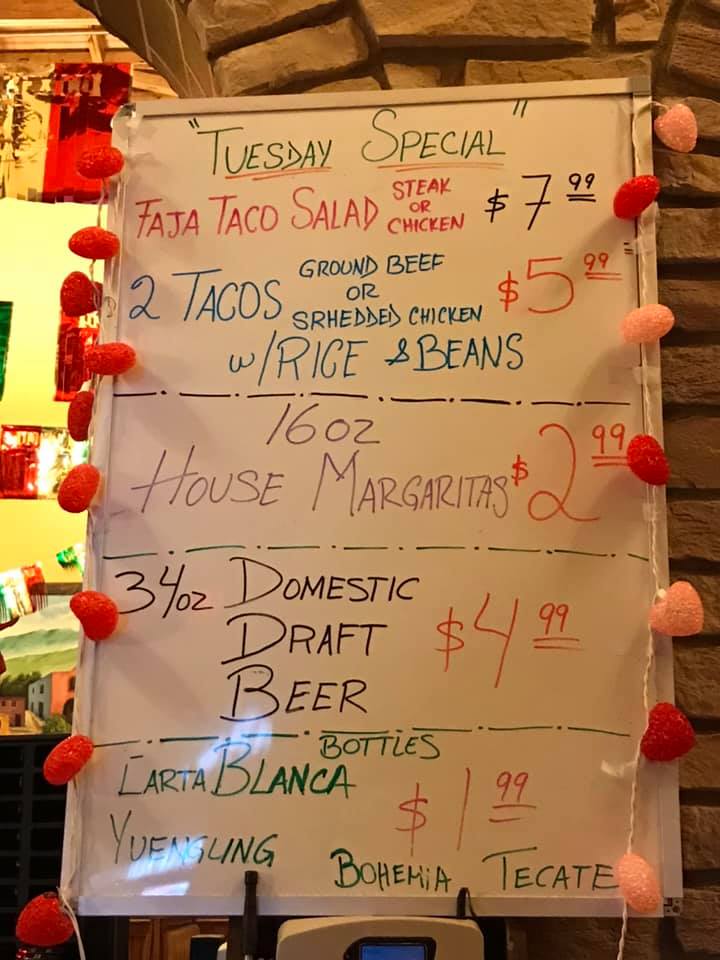 "TUESDAY SPECIAL"
FAJA TACO SALAD STEAK OR CHICKEN $7.99
2 TACOS GROUND BEEF OR SRHEDDED CHICKEN $5.99
w/RICE & BEANS
16oz
HOUSE MARGARITAS $2.99
34oz DOMESTIC
DRAFT $4.99
BEER
BOTTLES
CARTA BLANCA $1.99
YUENGLING
BOHEMIA TECATE